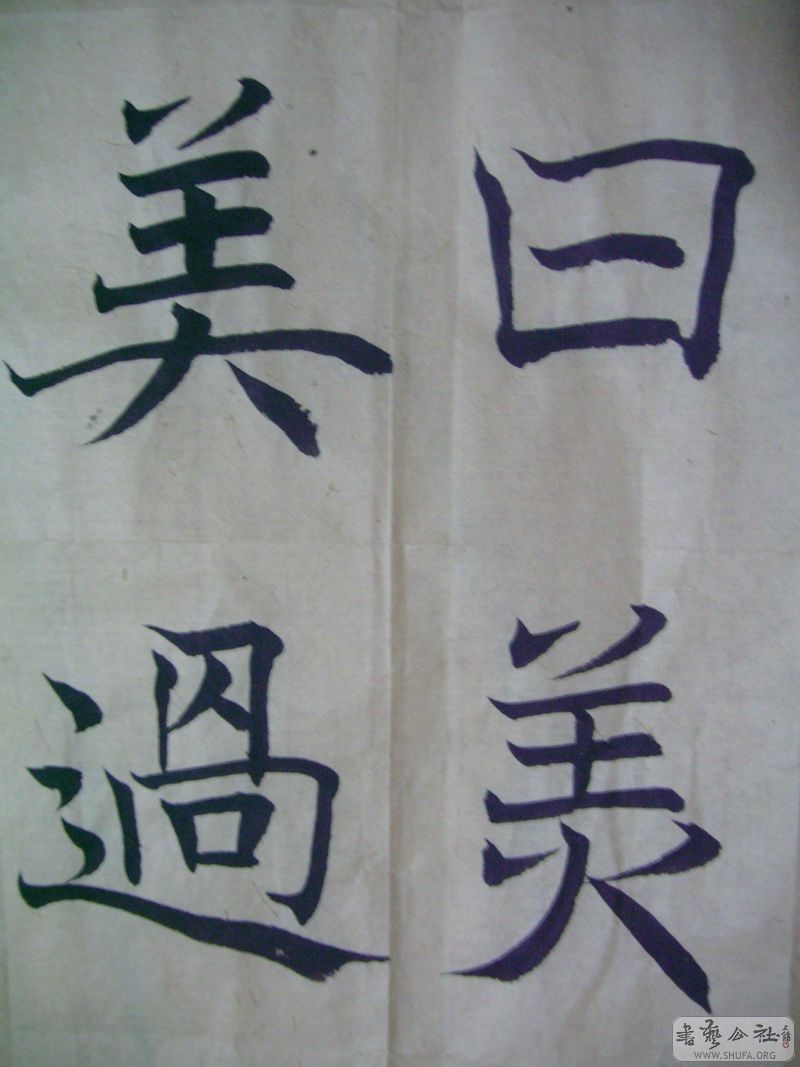 曰羙
美過
書藝公社
WWW.SHUFA.ORG